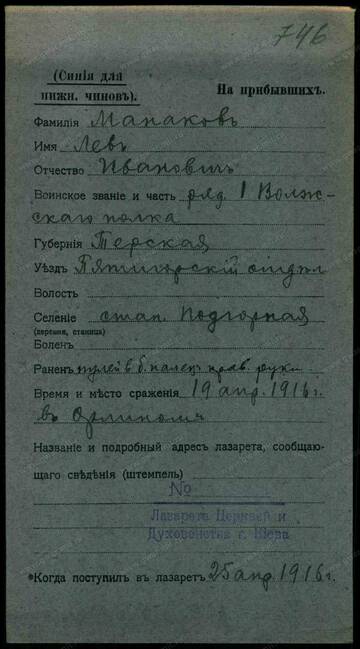 746
(Синія для
нижн. чиновъ).
На прибывшихъ.
Фамилія Манаковъ
Имя Левъ
Отчество Ивановичъ
Воинское званіе и часть ряд. 1 Волж-
скаго полка
Губернія Терская
Уѣздъ Пятигорскій отдѣл
Волость
Селеніе стан. Подгорная
(деревня, станица)
Боленъ
Раненъ пулей в б. палец прав. руки
Время и мѣсто сраженія 19 апр. 1916 г.
въ
Названіе и подробный адресъ лазарета, сообщаю-
щаго свѣдѣнія (штемпель)
№
Лазаретъ Церквей и
Духовенства г. Кіева
*Когда поступилъ въ лазаретъ 25 апр. 1916 г.